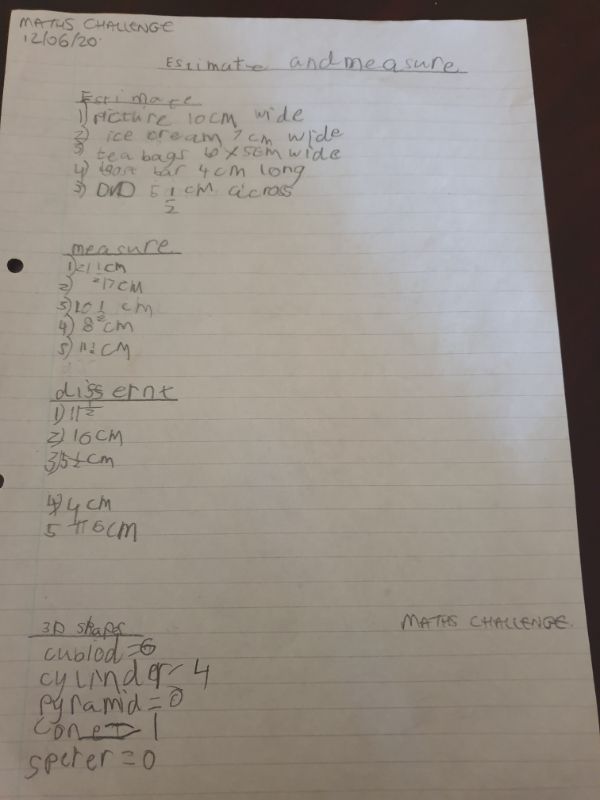 MATHS CHALLENGE
12/06/20
Estimate and measure
Estimate
1) Picture 10cm wide
2) ice cream 7 cm wide
3) tea bags 6 x 5cm wide
4) bar 4cm long
5) DVD 5 1/2 cm across
measure
1) 21 1/2 cm
2) 17cm
3) 10 1/2 cm
4) 8 cm
5) 11 1/2 cm
differnt
1) 11 1/2
2) 10cm
3) 5 1/2 cm
4) 4cm
5 6cm
3D shaps
MATHS CHALLENGE.
cubiod = 6
cylinder = 4
Pyramid = 0
cone = 1
speter = 0